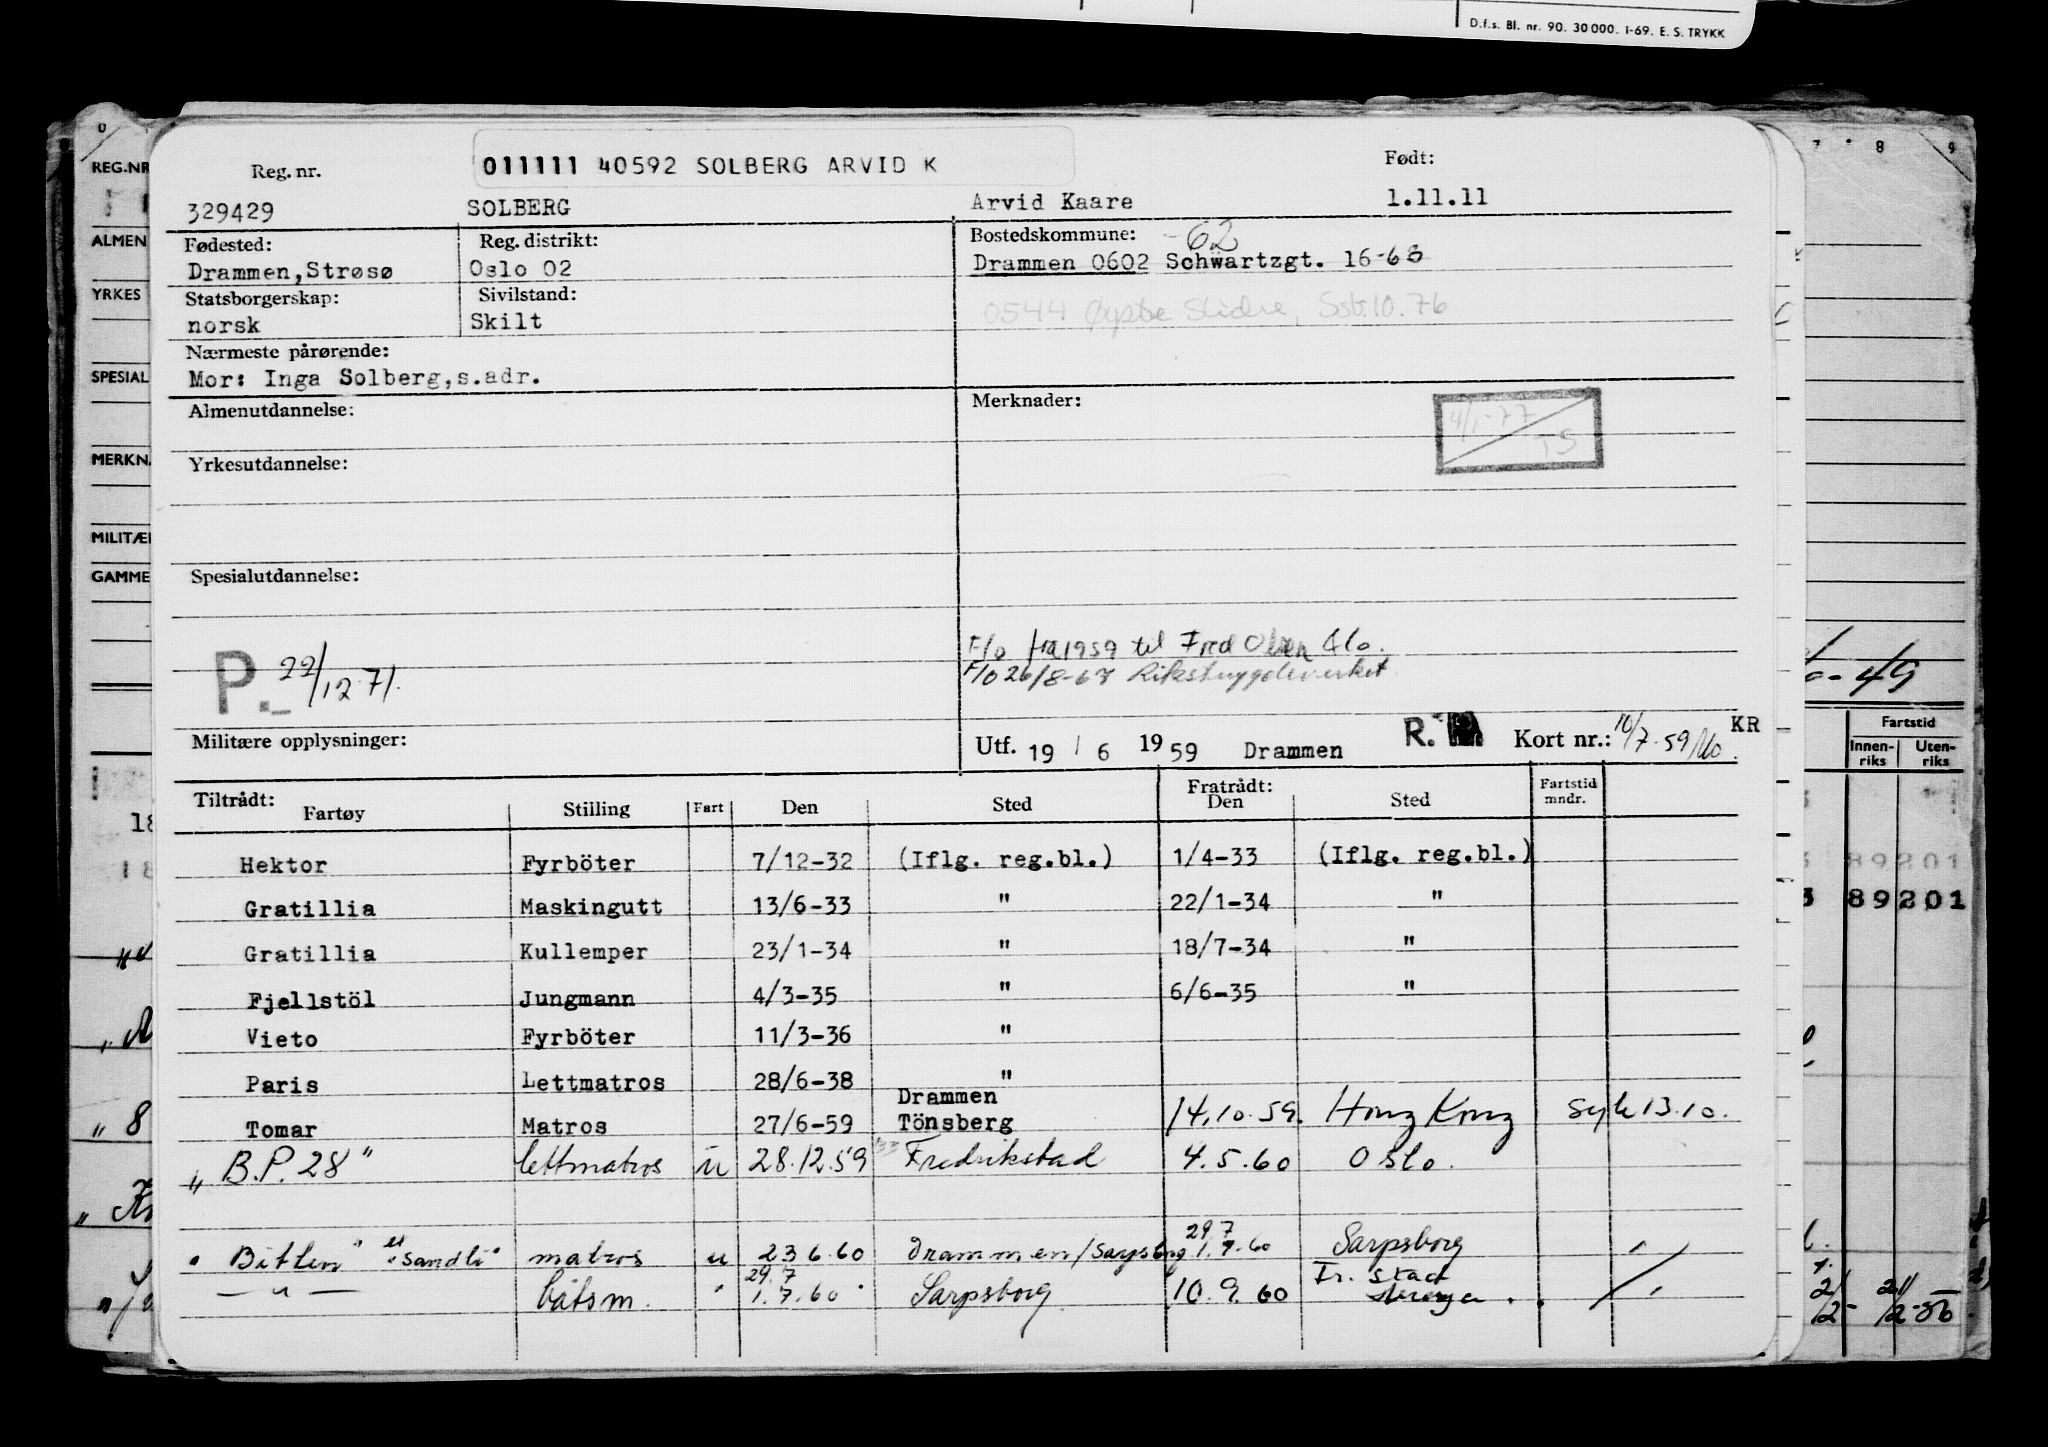 D.f.s. Bl. nr. 90. 30 000. 1-69. E. S. TRYKK
REG.NR
ALMEN
YRKES
SPESIAL
MERKN
MILITÆR
GAMME
Reg. nr. 011111 40592 SOLBERG ARVID K Født:
329429 SOLBERG Arvid Kaare 1.11.11
Fødested: Reg. distrikt: Bostedskommune: -62
Drammen,Strøsø Oslo 02 Drammen 0602 Schwartzgt. 16-63
Statsborgerskap: Sivilstand: 0544 Øystre Slidre, 10.76
norsk Skilt
Nærmeste pårørende:
Mor: Inga Solberg,s.adr.
Almenutdannelse: Merknader: 4/1-77 TS
Yrkesutdannelse:
Spesialutdannelse:
F/o fra 1959 til Fred Olsen &Co.
P.- 22/12.71. F/O 26/8-67 Rikstrygdeverket
Militære opplysninger: Utf. 19 / 6 1959 Drammen R. Kort nr.: 10/7.59 KR
Tiltrådt: Fratrådt: Fartstid
Fartøy Stilling Fart Den Sted Den Sted mndr.
Hektor Fyrböter 7/12-32 (Iflg. reg.bl.) 1/4-33 (Iflg. reg.bl.)
Gratillia Maskingutt 13/6-33 " 22/1-34 "
Gratillia Kullemper 23/1-34 " 18/7-34 "
Fjellstöl Jungmann 4/3-35 " 6/6-35 "
Vieto Fyrböter 11/3-36 "
Paris Lettmatros 28/6-38 "
Drammen
Tomar Matros 27/6-59 Tönsberg 14.10.59. Hong Kong syk 13.10.
" B.P. 28 " lettmatros u 28.12.59 Fredrikstad 4.5.60 Oslo.
29 7
" Bitten " "Sandli" matros u 23 6.60 Drammen/Sarpsborg 1.7.60 Sarpsborg "
29. 7
— " — båtsm. " 1.7.60 Sarpsborg 10.9.60 "
-49
Fartstid
Innen-riks Uten-riks
89201
89201